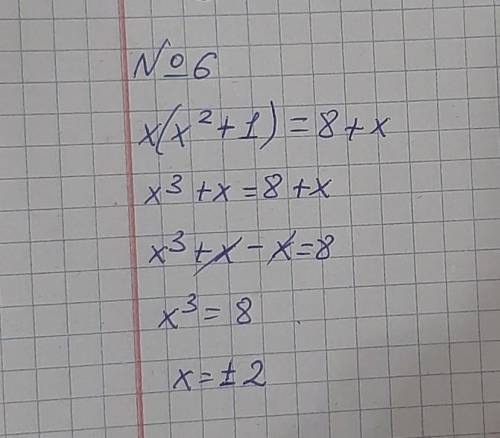 № 6
x(x² + 1) = 8 + x
x³ + x = 8 + x
x³ + x - x = 8
x³ = 8
x = ± 2